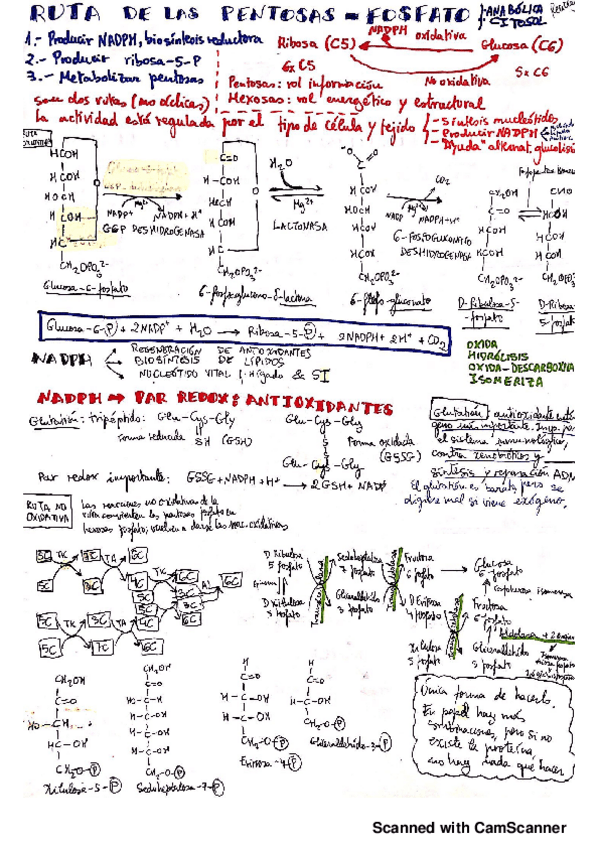 RUTA DE LAS PENTOSAS = FOSFATO
- ANABÓLICA
- CITOSOL
1.- Producir NADPH, biosíntesis reductora
2.- Producir ribosa-5-P
3.- Metabolizar pentosas
Ribosa (C5)
NADPH
oxidativa
Glucosa (C6)
6x C5
No oxidativa
5x C6
Pentosas: rol información
Hexosas: rol energético y estructural
son dos rutas (no cíclicas)
la actividad está regulada por el tipo de célula y tejido
- Síntesis nucleótidos
- Producir NADPH
- "Ayuda" alternat. glucólisis
RUTA
HCOH
HCOH
HOCH
HCOH
HC
CH2OPO3 2-
Glucosa-6-fosfato
Mg2+
NADP+
NADPH + H+
G6P DESHIDROGENASA
C=O
H-COH
HOCH
HCOH
HC
CH2OPO3 2-
6-fosfoglucono-δ-lactona
H2O
Mg2+
LACTONASA
HCOH
HOCH
HCOH
HCOH
CH2OPO3 2-
6-fosfo-gluconato
CO2
Mg2+
NADP
NADPH+H+
6-FOSFOGLUCONATO
DESHIDROGENASA
CH2OH
C=O
HCOH
HCOH
CH2OPO3 2-
D-Ribulosa-5-
-fosfato
CHO
HCOH
HCOH
HCOH
D-Ribosa
5-fosfato
Glucosa-6-P + 2NADP+ + H2O → Ribosa-5-P + 2NADPH + 2H+ + CO2
OXIDA
HIDRÓLISIS
OXIDA-DESCARBOXILA
ISOMERIZA
NADPH
REGENERACIÓN DE ANTIOXIDANTES
BIOSÍNTESIS DE LÍPIDOS
NUCLEÓTIDO VITAL
NADPH → PAR REDOX: ANTIOXIDANTES
Glutatión: tripéptido: Glu-Cys-Gly
forma reducida SH (GSH)
Glu-Cys-Gly
Glu-Cys-Gly
Forma oxidada
(GSSG)
Par redox importante: GSSG+NADPH+H+ → 2GSH+NADP
Glutatión: antioxidante
el sistema inmunológico,
contra xenobióticos y
síntesis y reparación ADN
El glutatión es barato pero se
digiere mal si viene exógeno.
RUTA NO
OXIDATIVA
Las reacciones no oxidativas de la
ruta convierten las pentosas fosfato en
hexosas fosfato, vuelven a darse las reac. oxidativas
5C TK 3C TA 6C
5C 7C 4C TK 6C
5C 3C Al 6C
5C TK 3C TA 4C TK 3C
5C 7C 6C
D Ribulosa
5 fosfato
D Xilulosa
5 fosfato
Transcetolasa
Sedoheptulosa
7 fosfato
Gliceraldehído
3 fosfato
Fructosa
6 fosfato
D Eritrosa
4 fosfato
Xilulosa
5 fosfato
Glucosa
6 fosfato
Fructosa
6 fosfato
Gliceraldehído
3 fosfato
CH2OH
C=O
HO-CH
HC-OH
CH2O-P
Xilulosa-5-P
CH2OH
C=O
HO-C-H
H-C-OH
H-C-OH
H-C-OH
CH2O-P
Sedoheptulosa-7-P
C=O
H-C-OH
H-C-OH
CH2-O-P
Eritrosa-4-P
C=O
H-C-OH
CH2-O-P
Gliceraldehído-3-P
Única forma de hacerlo.
En papel hay más
combinaciones, pero si no
existe la proteína,
no hay nada que hacer
Scanned with CamScanner